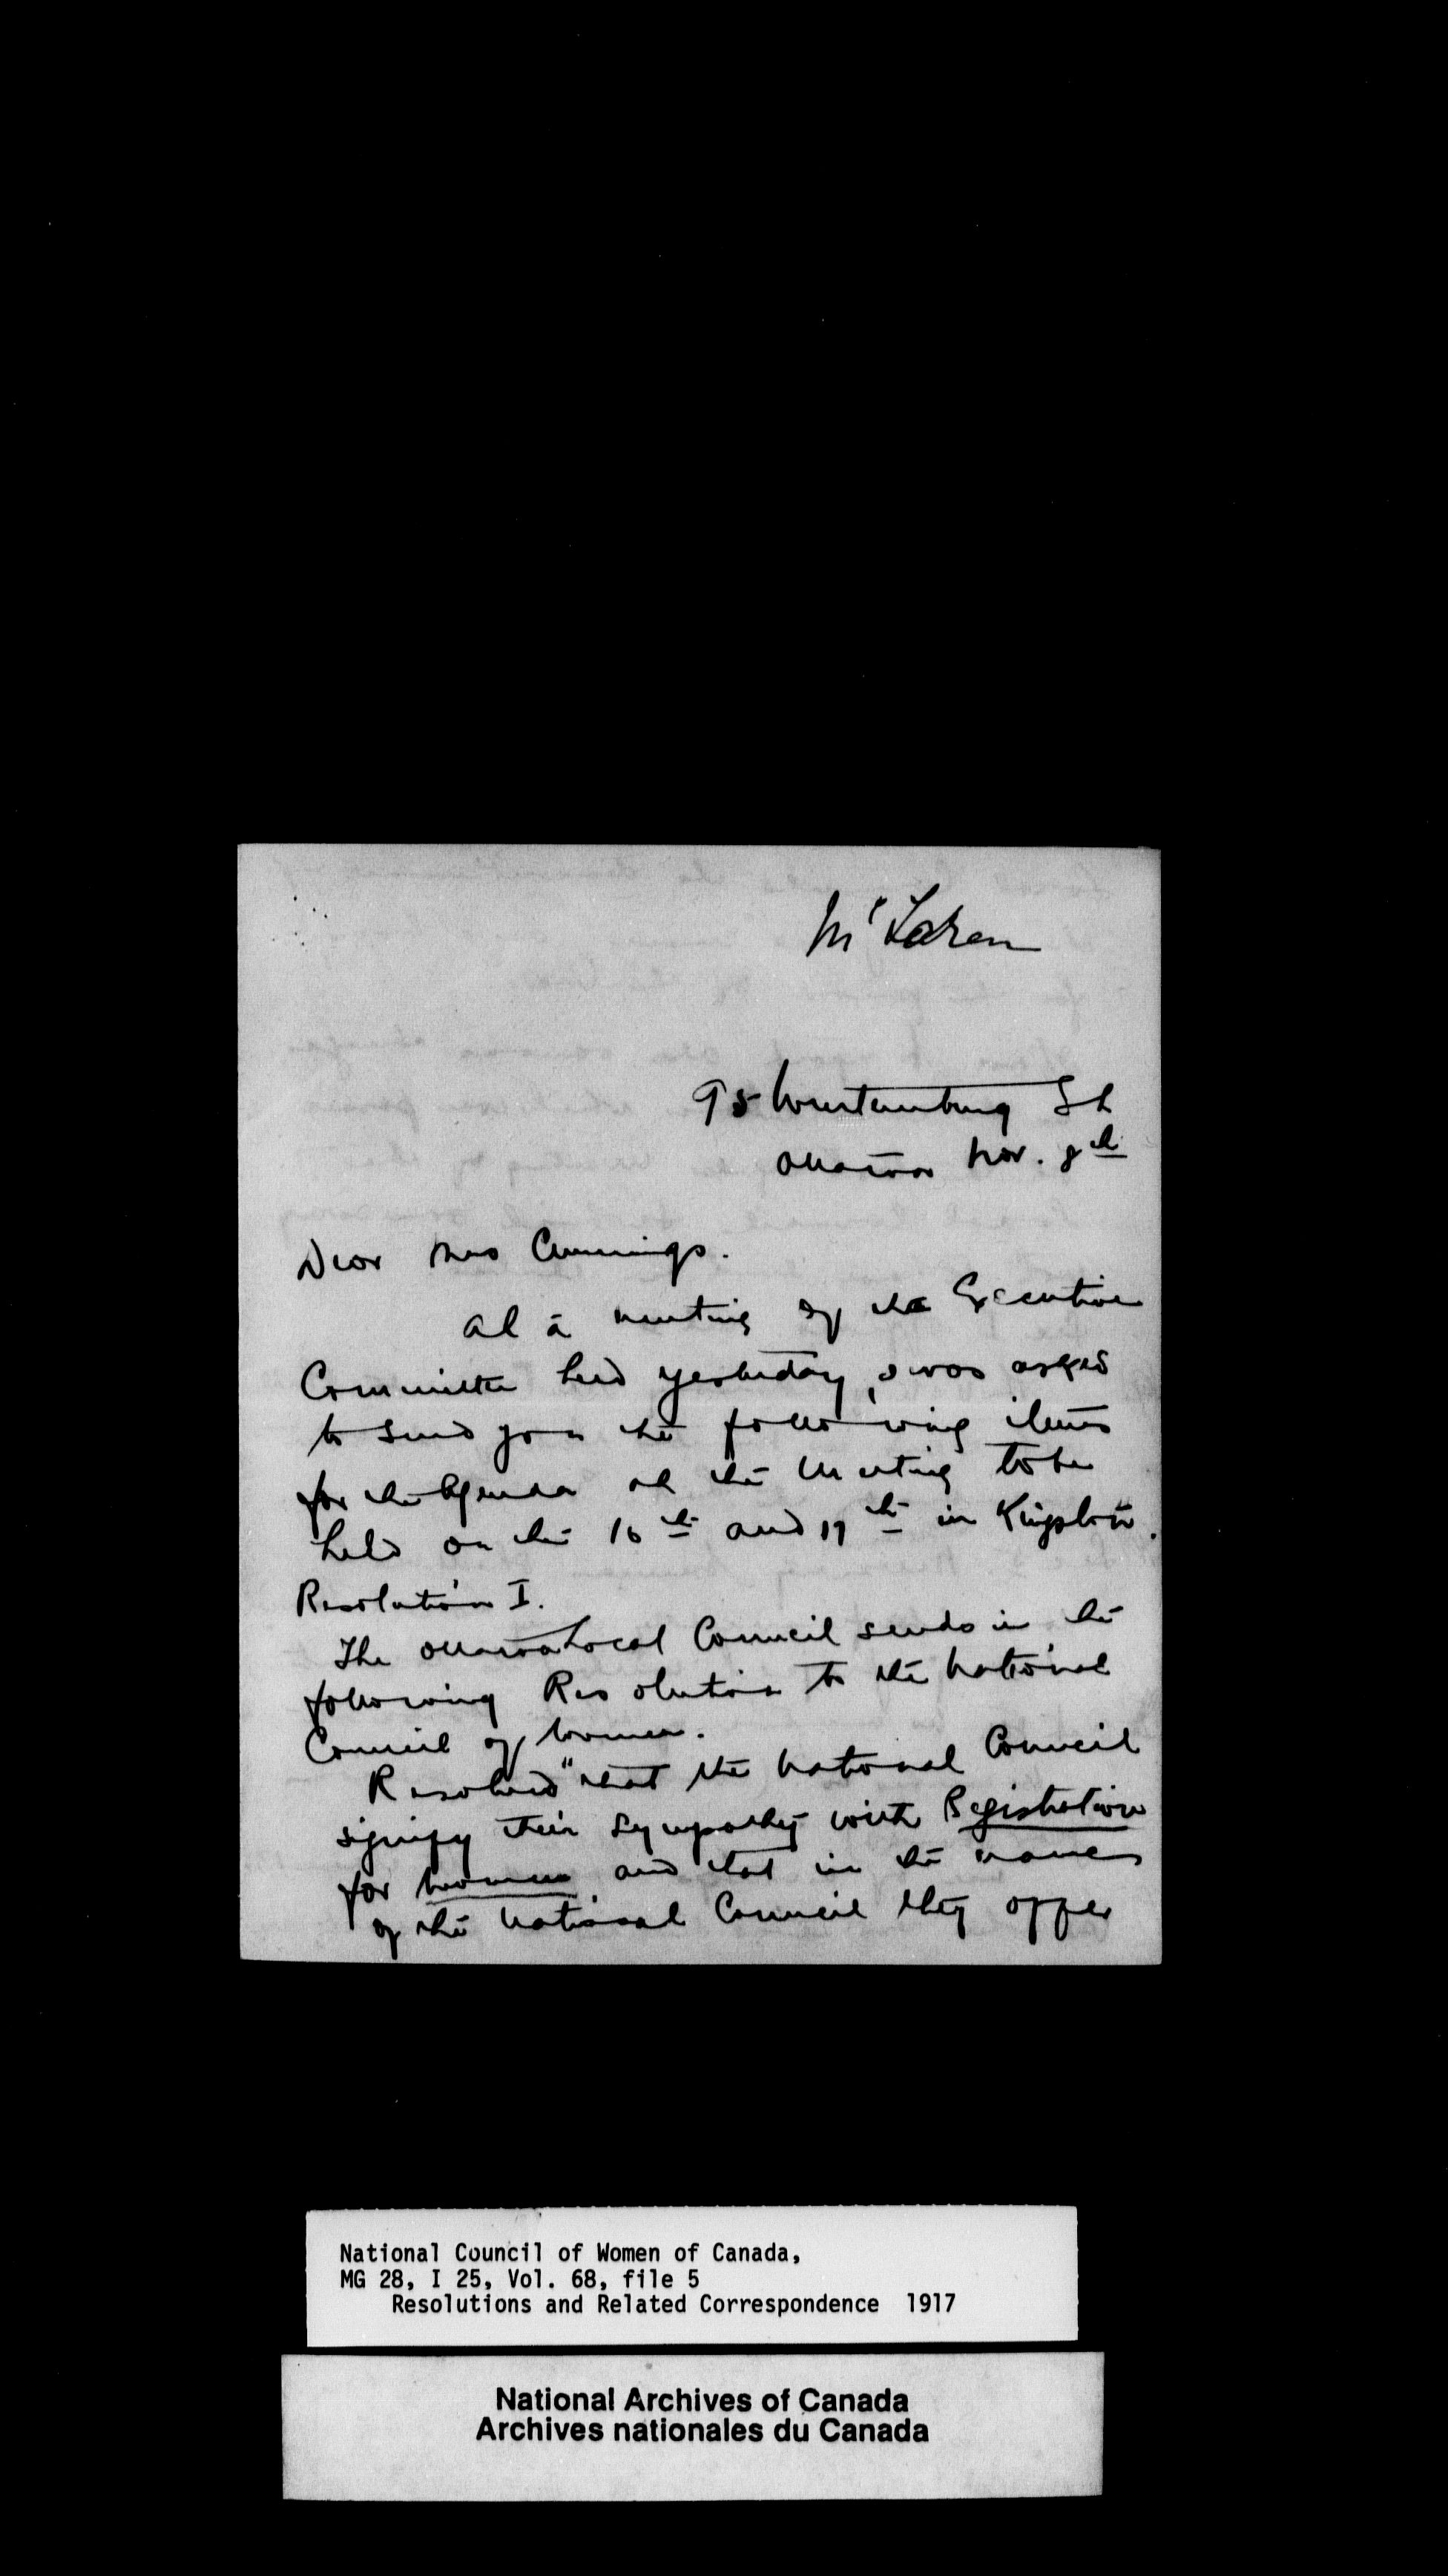 McLaren
95 Wurtemburg St
Ottawa Nov. 8th
Dear Mrs Cummings.
At a meeting of the Executive
Committee held yesterday, I was asked
to send you the following items
for the Agenda at the Meeting to be
held on the 16th and 17th in Kingston.
Resolution I.
The Ottawa Local Council sends in the
following Resolution to the National
Council of Women.
Resolved "that the National Council
signify their sympathy with Registration
for women and that in the name
of the National Council they offer
National Council of Women of Canada,
MG 28, I 25, Vol. 68, file 5
Resolutions and Related Correspondence 1917
National Archives of Canada
Archives nationales du Canada